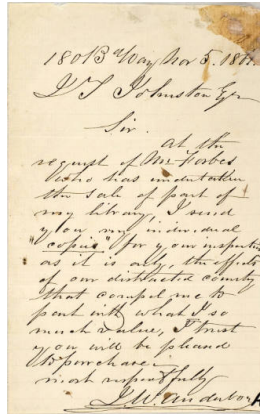 180 B Way Nov 5. 186
J T Johnston Esqr
Sir.
at the
request of Mr Forbes
who has undertaken
the sale of part of
my library, I send
you my individual
"copies" for your inspection
as it is only, the effects
of our distracted country
that compel me to
part with what I so
much value, I trust
you will be pleased
to purchase.
most respectfully